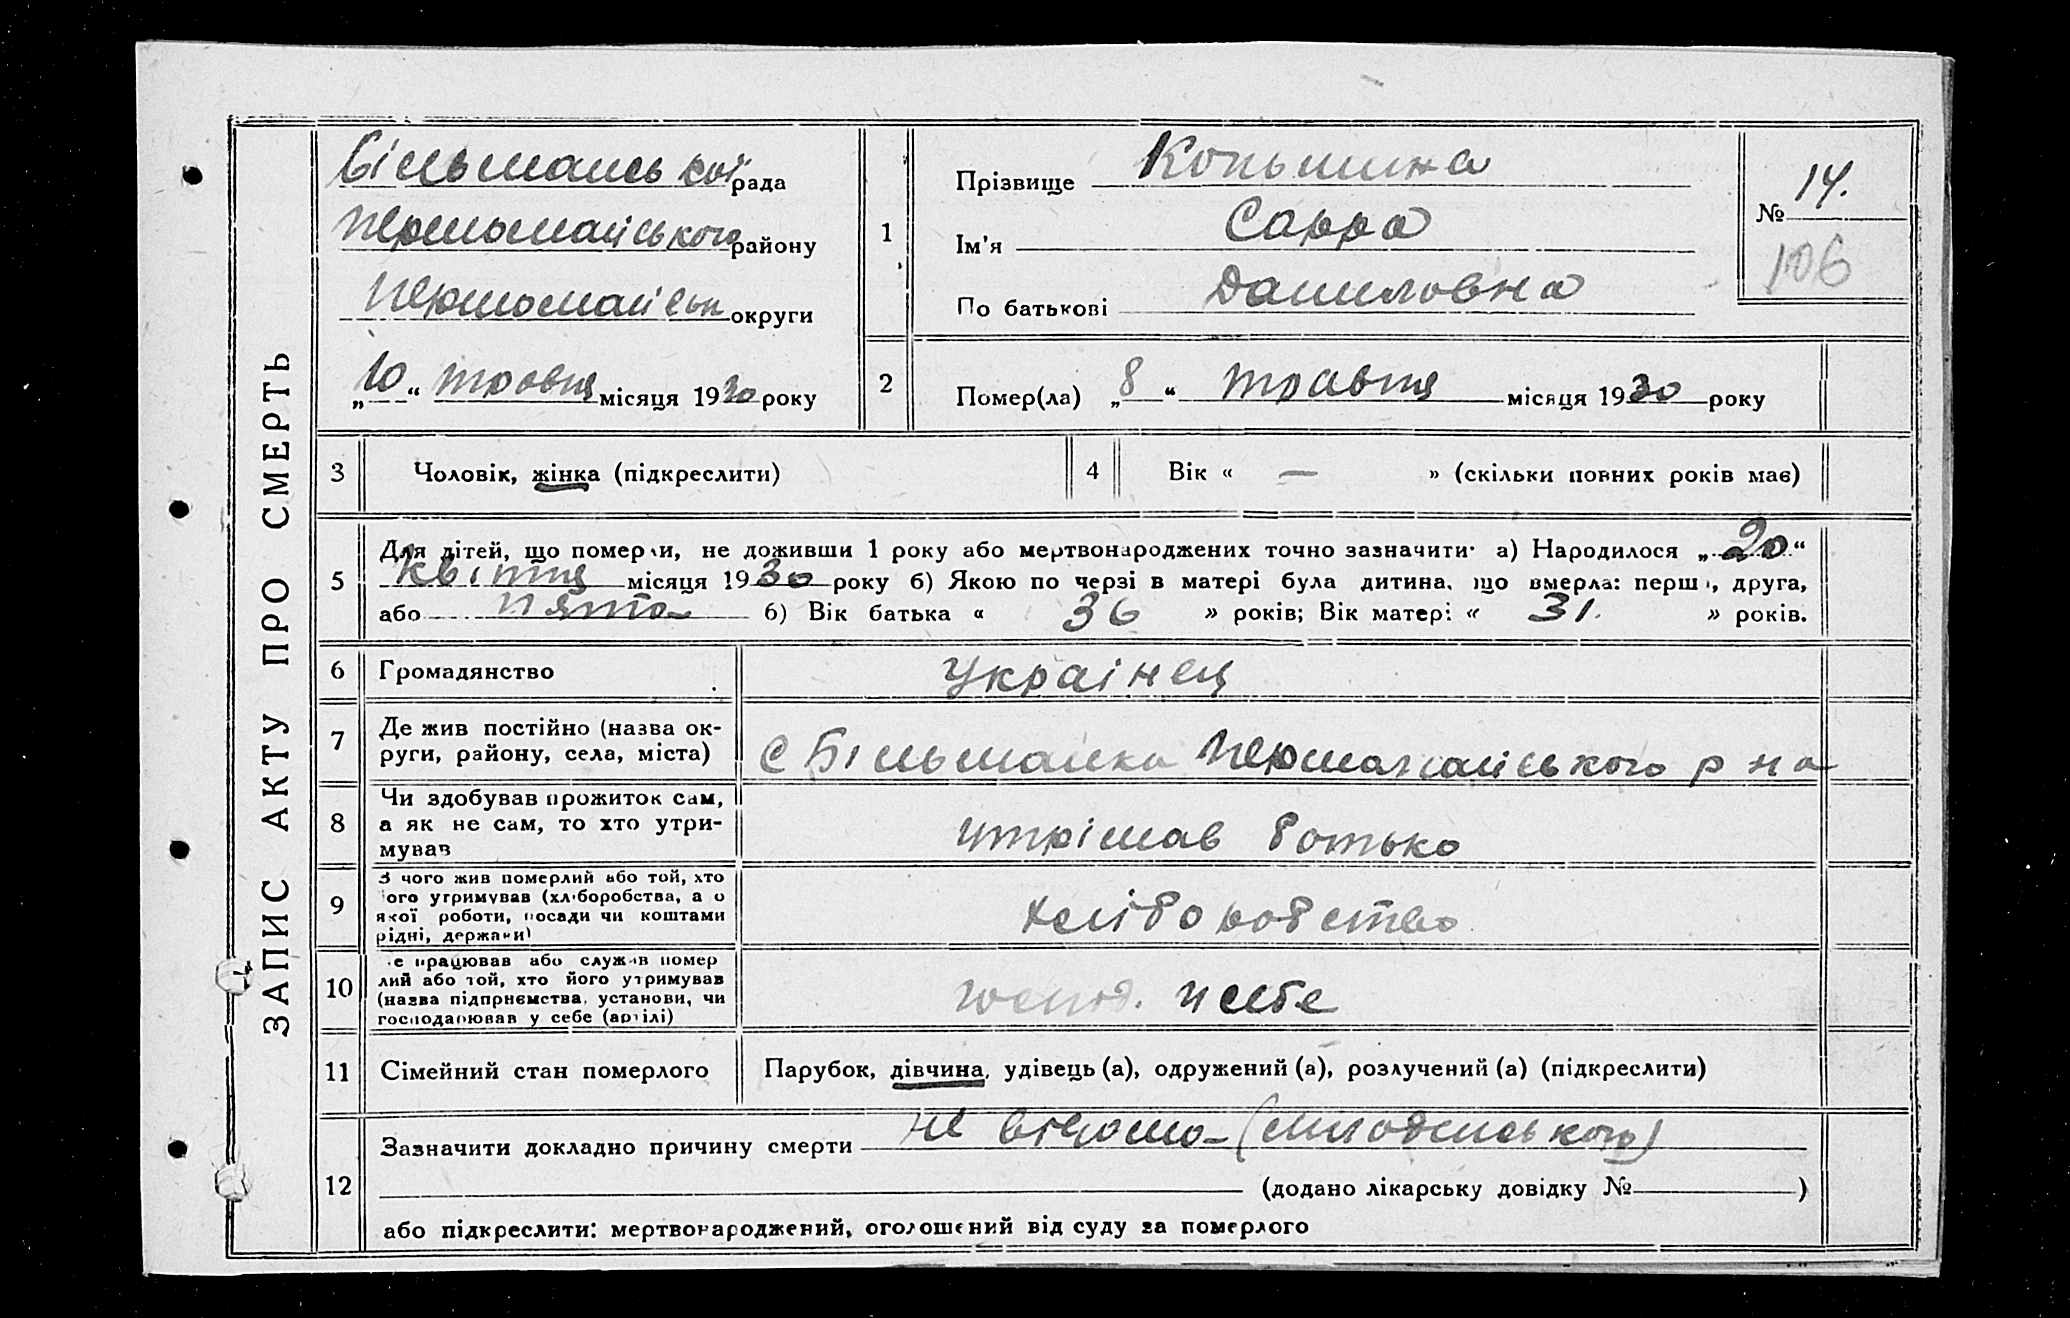 ЗАПИС АКТУ ПРО СМЕРТЬ
Більманської рада
Першомайського району
Першомайськ округи
„10“ травця місяця 1930 року
1
Прізвище Копьшина
Ім'я Сарра
По батькові Даниловна
№ 14.
106
2
Помер(ла) „8“ травця місяця 1930 року
3 Чоловік, жінка (підкреслити)
4 Вік « — » (скільки повних років має)
5
Для дітей, що померли, не доживши 1 року або мертвонароджених точно зазначити: а) Народилося „20“
Квітця місяця 1930 року б) Якою по черзі в матері була дитина, що вмерла: перша, друга,
або пята б) Вік батька « 36 » років; Вік матері « 31. » років.
6 Громадянство Українец
7 Де жив постійно (назва ок-
руги, району, села, міста)
с Більманка Першамайського р на
8 Чи здобував прожиток сам,
а як не сам, то хто утри-
мував
утрімав батько
9 З чого жив померлий або той, хто
його утримував (хліборобства, а о
якої роботи, посади чи коштами
рідні, держави)
хліборобство
10 Де працював або служив помер
лий або той, хто його утримував
(назва підприємства, установи, чи
господарював у себе (артілі)
у себе
11 Сімейний стан померлого Парубок, дівчина, удівець (а), одружений (а), розлучений (а) (підкреслити)
12
Зазначити докладно причину смерти не відомо – (младенського)
(додано лікарську довідку № )
або підкреслити: мертвонароджений, оголошений від суду за померлого